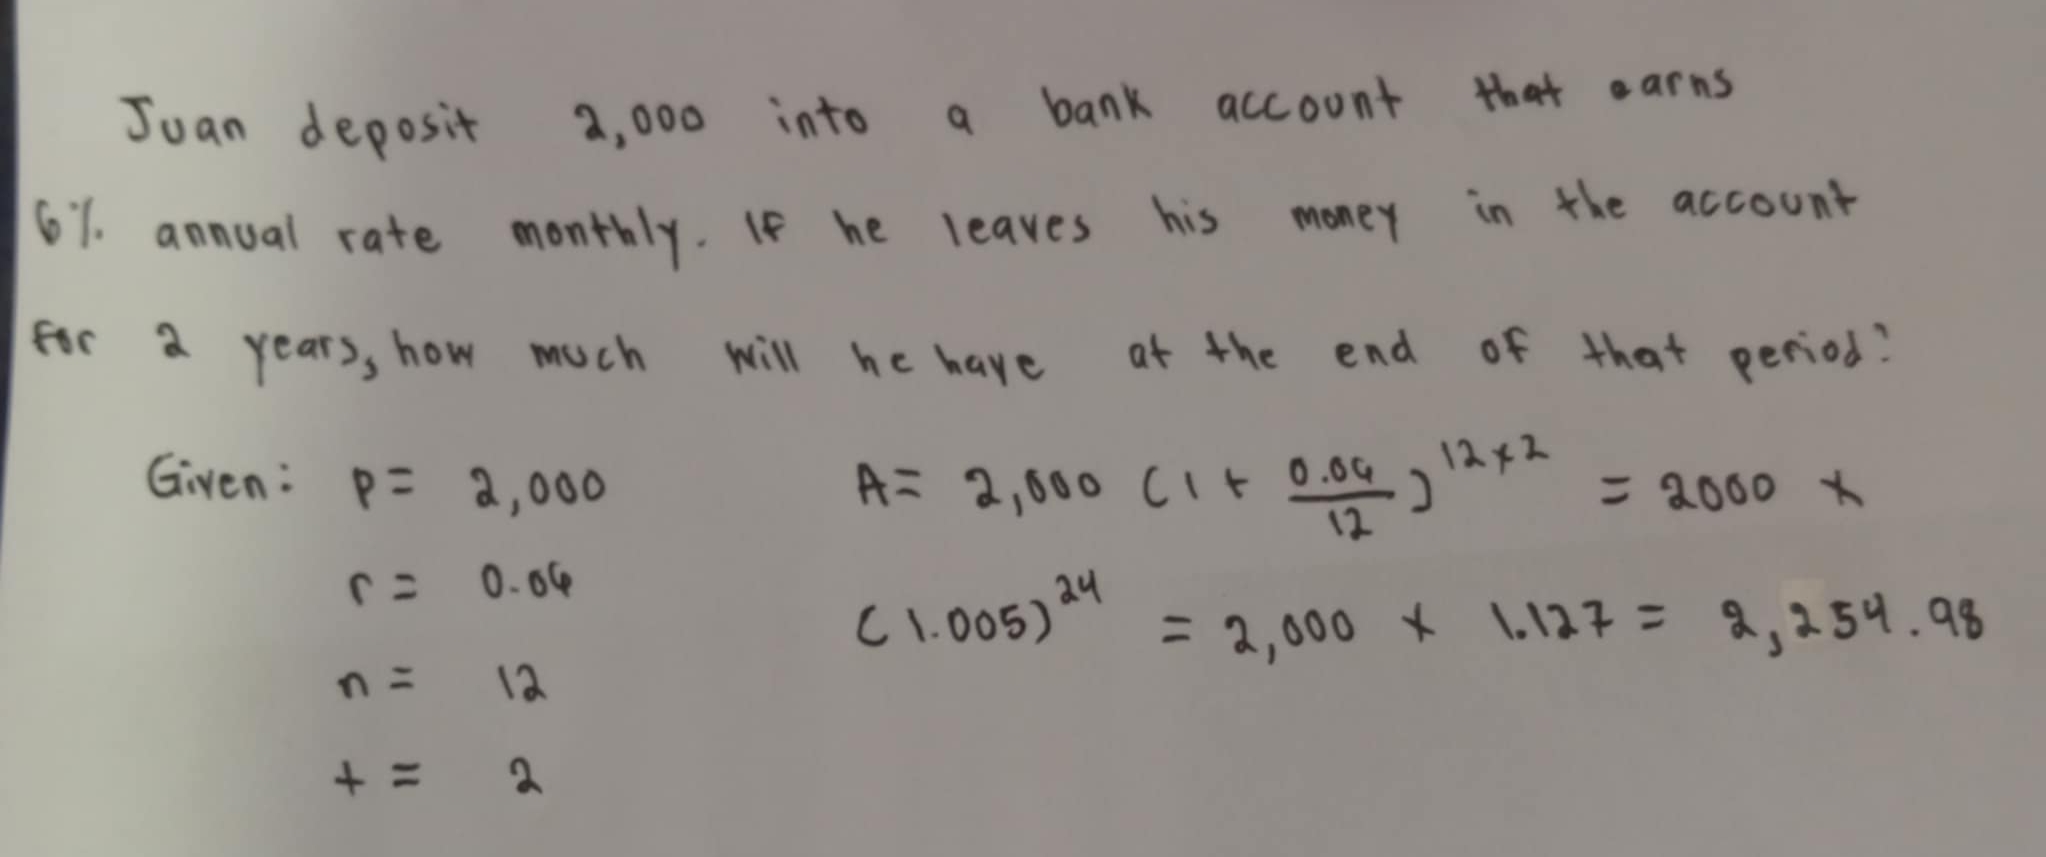 Juan deposit 2,000 into a bank account that earns
6% annual rate monthly. If he leaves his money in the account
for 2 years, how much will he have at the end of that period?
Given: P = 2,000
r = 0.06
n = 12
t = 2
A = 2,000 (1 + 0.06/12)^12×2 = 2000 ×
(1.005)^24 = 2,000 × 1.127 = 2,254.98